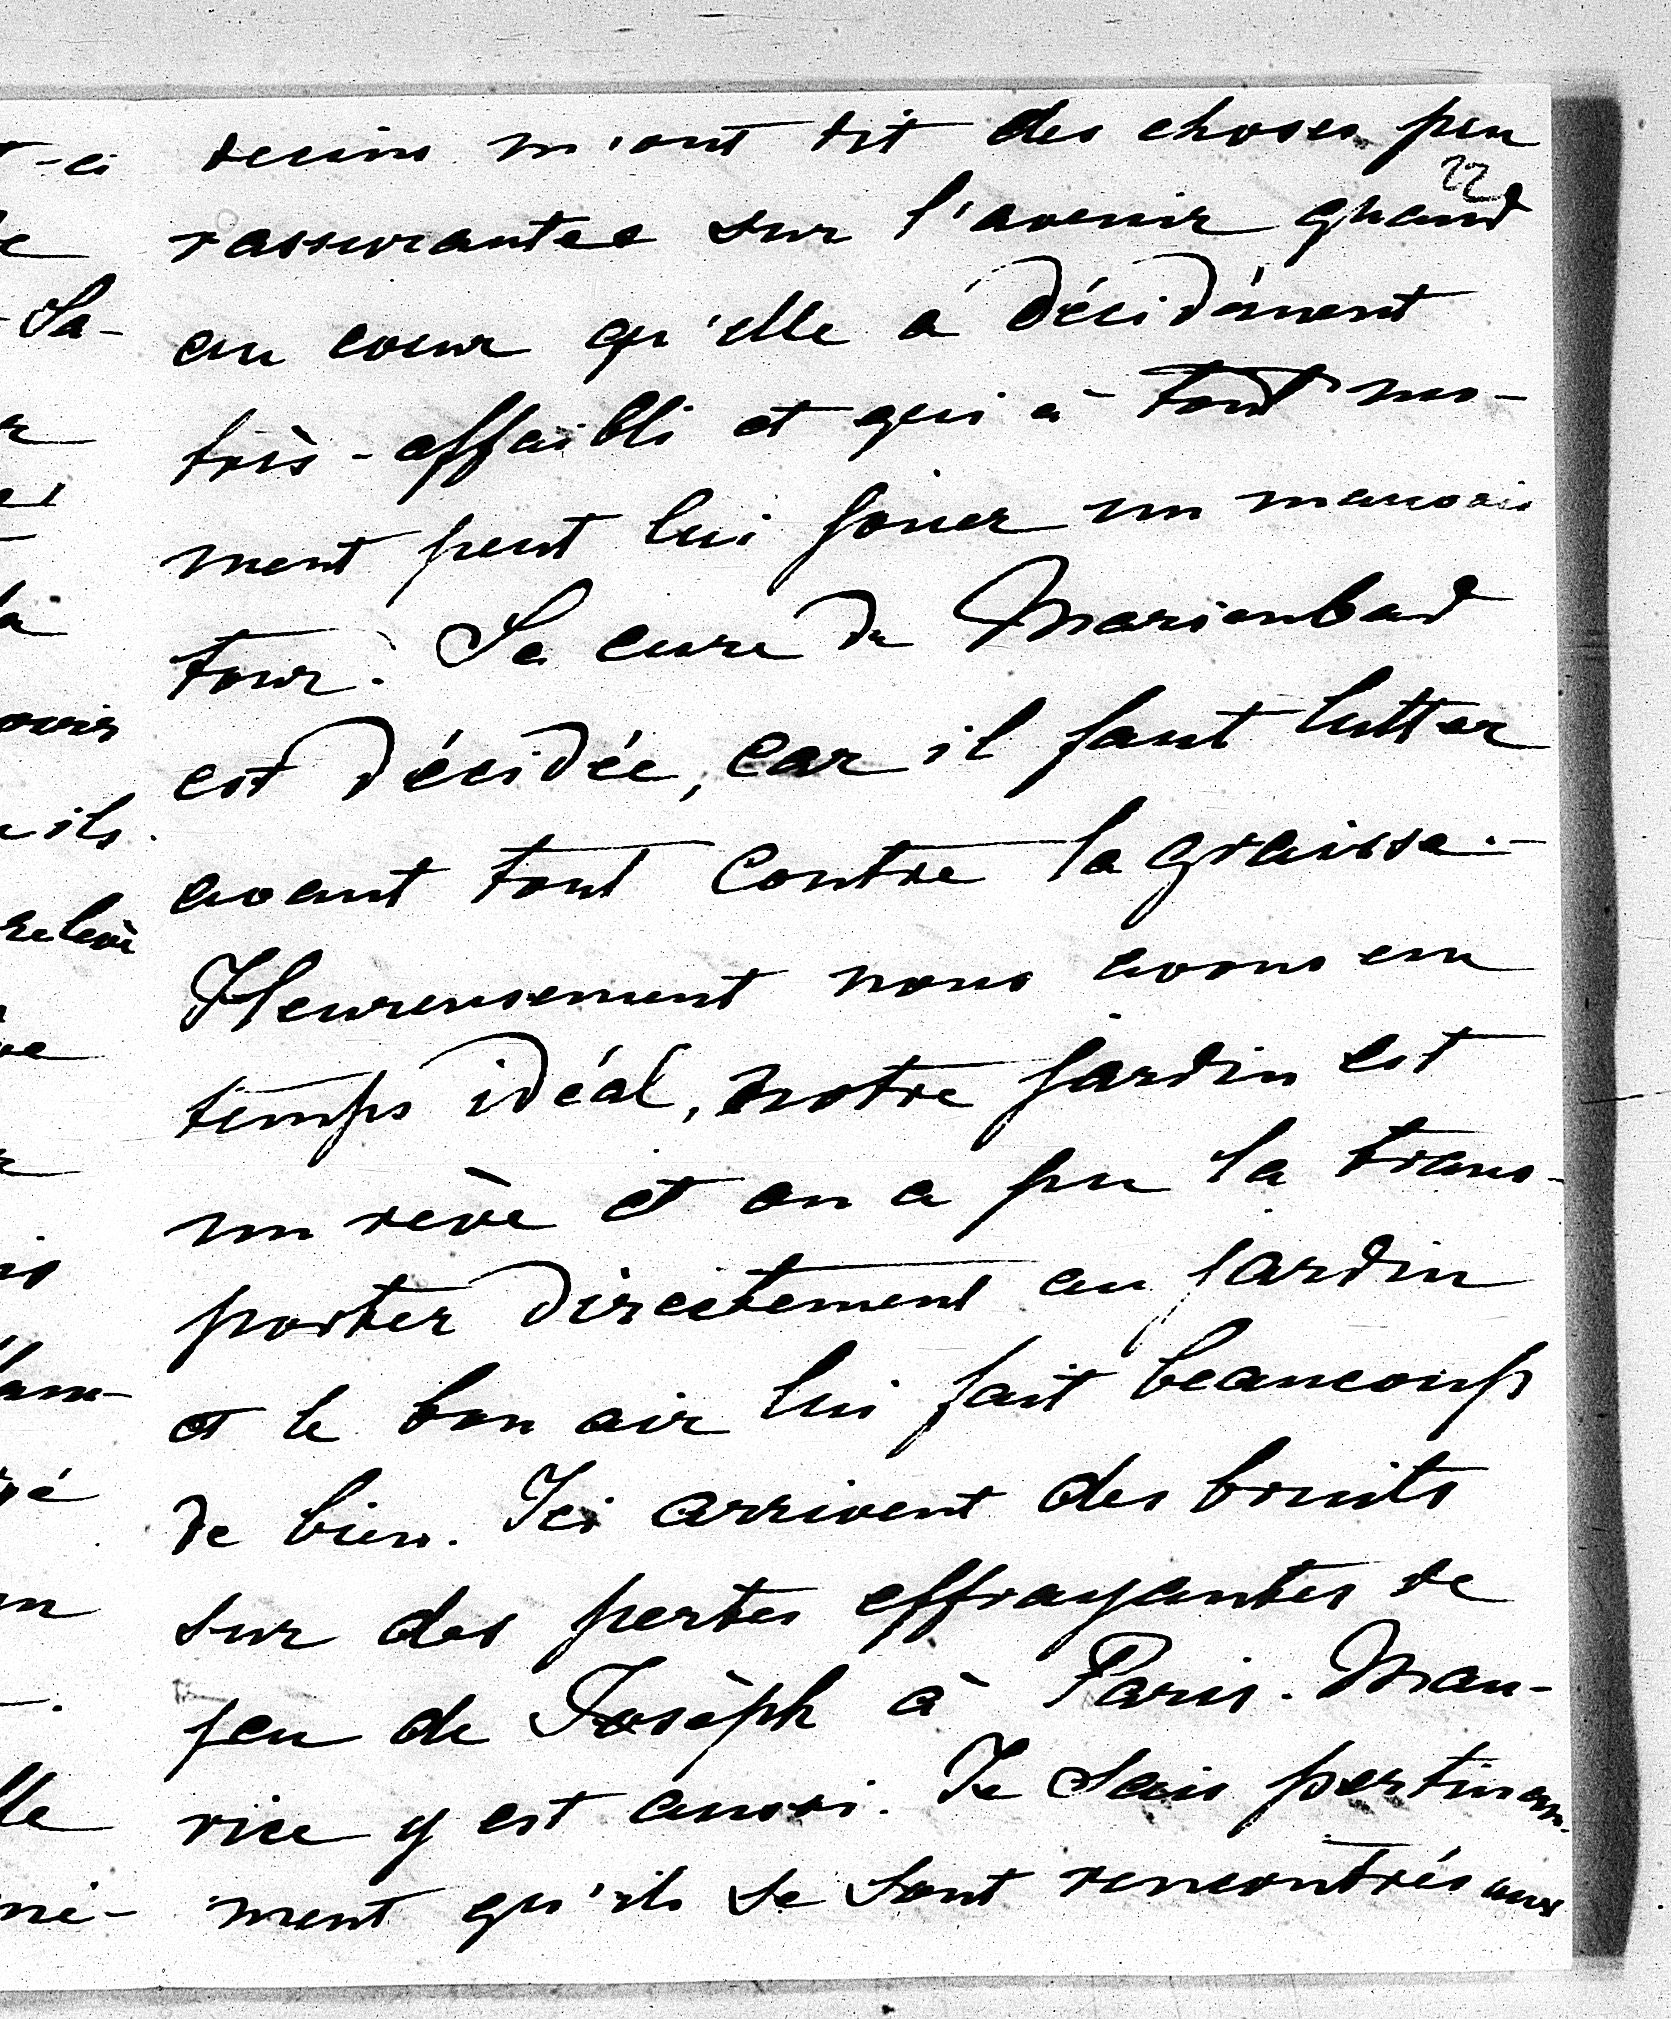 decins m'ont dit des choses peu
22
rassurantes sur l'avenir quand
au coeur qu'elle à décidément
très-affaibli et qui à tout mo-
ment peut lui jouer un mauvais
tour. La cure de Marienbad
est décidée, car il faut lutter
avant tout contre la graisse.-
Heureusement nous avons eu
temps idéal, notre jardin est
un rêve et on a pu la trans-
porter directement au jardin
et le bon air lui fait beaucoup
de bien. Ici arrivent des bruits
sur des pertes effrayantes de
jeu de Josèph à Paris. Mau-
rice y est aussi. Je sais pertinem-
ment qu'ils se sont rencontrés aux